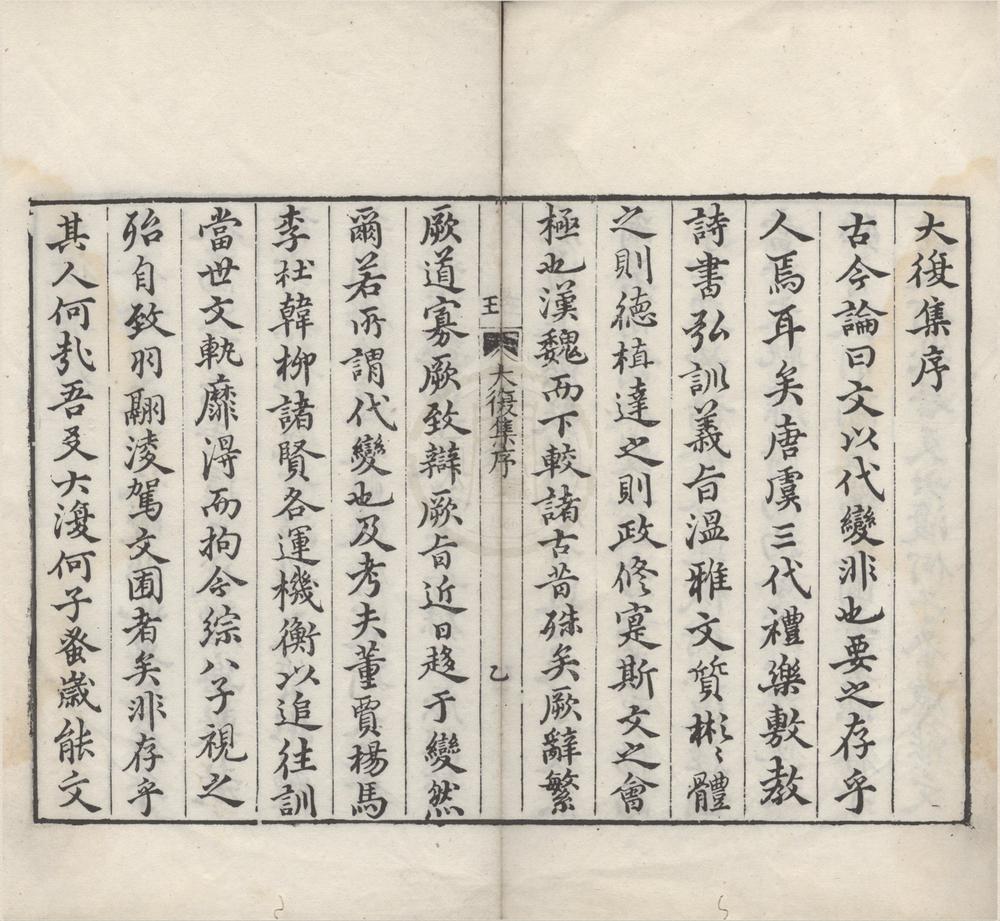 大復集序
古今論曰文以代變非也要之存乎
人焉耳矣唐虞三代禮樂敷教
詩書弘訓義旨温雅文質彬〻體
之則德植達之則政修寔斯文之會
極也漢魏而下較諸古昔殊矣厥辭繁
王
大復集序
乙
厥道寡厥致辯厥旨近日趍于變然
爾若所謂代變也及考夫董賈楊馬
李杜韓柳諸賢各運機衡以追往訓
當世文軌靡淂而拘今綜八子視之
殆自致羽翮淩駕文囿者矣非存乎
其人何㢤吾友大復何子蚤歲能文